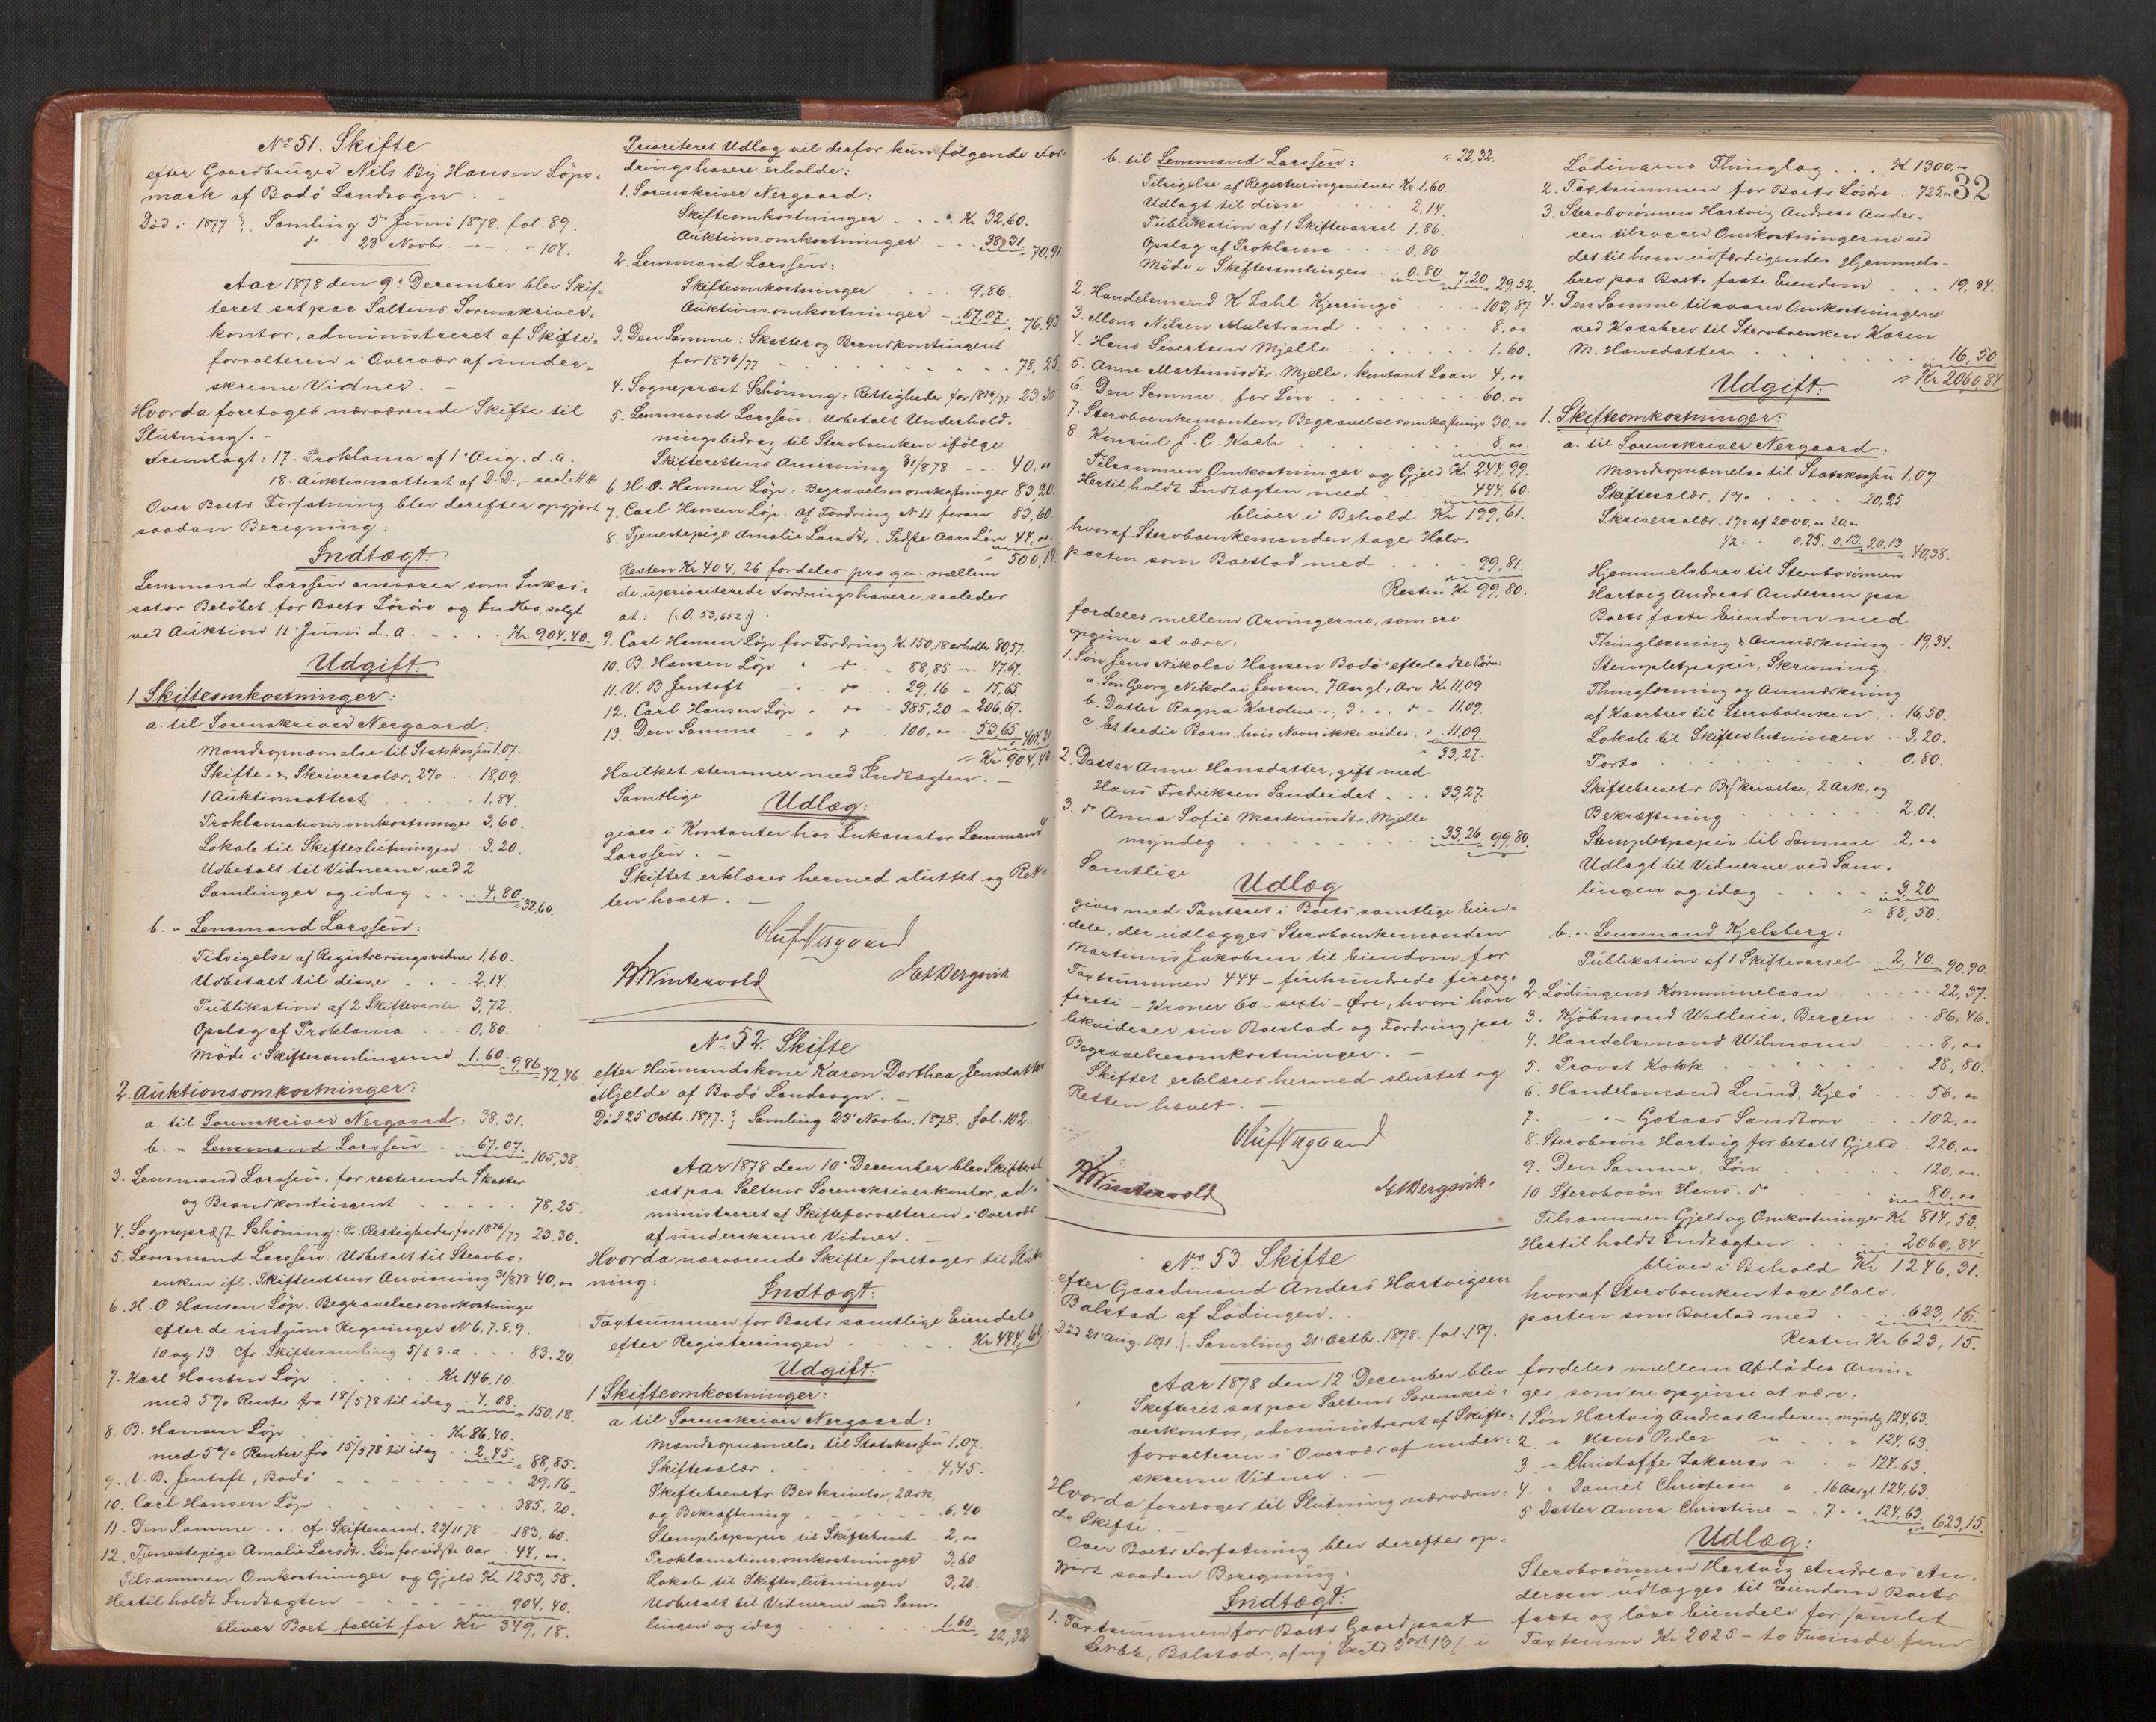 No 51. Skifte
efter Gaardbruger Nils By Hansen Löps-
mark af Bodö Landsogn.
Död: 1877 Samling 5' Juni 1878. fol. 89.
do 23' Novbr. - " - " 104.
Aar 1878 den 9' December blev Skif-
teret sat paa Saltens Sorenskriver-
kontor, administreret af Skifte-
forvalteren i Overvær af under-
skrevne Vidner. -
Hvorda foretoges nærværende Skifte til
Slutning. -
Fremlagt: 17. Proklama af 1' Aug. d. a.
18. Auktionsattest af D. D.,
Over Boets Forfatning blev derefter opgjort
saadan Beregning:
Indtægt:
Lensmand Larssen ansvarer som Inkas-
sator Beløbet for Boets Lösöre og Indbo, solgt
ved Auktion 11' Juni d. a. - - - Kr 904,40.
Udgift:
1 Skifteomkostninger:
a. til Sorenskriver Nergaard:
Mandsopnævnelse til Statskassen 1,07.
Skifte- & Skriversalær, 2% . . 18,09.
1 Auktionsattest . . . . 1,84.
Proklamationsomkostninger 3,60.
Lokale til Skifteslutningen . 3,20.
Udbetalt til Vidnerne ved 2
Samlinger og idag . . . 4,80. 32,60.
b. " Lensmand Larssen:
Tilsigelse af Registreringsvidner 1,60.
Udbetalt til disse . . . 2,14.
Publikation af 2 Skiftevarsler 3,72.
Opslag af Proklama . . . 0,80.
Möde i Skiftesamlingerne 1,60. 9,86 42,46.
2. Auktionsomkostninger:
a. til Sorenskriver Nergaard: 38,31.
b. " Lensmand Larssen . . 67,07. 105,38.
3. Lensmand Larssen, for resterende Skatter
og Brandkontingent . . . . 78,25.
4. Sogneprest Schöning: Pr. Rettigheder for 1876/77 23,30.
5. Lensmand Larssen. Udbetalt til Sterbo-
enken ifl. Skifterettens Anvisning 31/878 40,00
6. H. O. Hansen Löp. Begravelsesomkostninger
efter de indgivne Regninger No 6. 7. 8. 9.
10 og 13. cfr. Skiftesamling 5/6 d. a . . . 83.20.
7. Karl Hansen Löp . . . Kr 146,10.
med 5% Renter fra 18/578 til idag . 4,08. 150,18.
8. B. Hansen Löp . . . Kr 86,40.
med 5% Renter fra 15/578 til idag . . 2,45. 88,85.
9. V. B. Jentoft, Bodö . . . . 29,16
10. Carl Hansen Löp . . . . 385,20.
11. Den Samme . . . cfr. Skiftesaml. 23/11 78 - 183,60.
12. Tjenestepige Amalie Larsdtr. Lön for sidste Aar . 44,00.
Tilsammen Omkostninger og Gjeld Kr 1253,58.
Hertil holdt Indtægten . . . . 904,40.
bliver Boet fallit for Kr 349,18.
Prioriteret Udlæg vil derfor kun følgende For-
dringshavere erholde:
1. Sorenskriver Nergaard:
Skifteomkostninger . . . Kr. 32,60.
Auktionsomkostninger . . . 38,31. 70,91.
2. Lensmand Larssen:
Skifteomkostninger . . . 9,86.
Auktionsomkostninger - 67,07. 76,93
3. Den Samme: Skatter og Brandkontingent
for 1876/77 . . . . 78,25.
4. Sogneprest Schöning: Rettigheder for 1876/77 23,30
5. Lensmand Larssen. Udbetalt Underhold-
ningsbidrag til Sterboenken ifölge
Skifterettens Anvisning 31/878 - - 40,00
6. H. O. Hansen Löp, Begravelsesomkostninger 83,20.
7. Carl Hansen Löp. Af Fordring No 11 foran 83,60.
8. Tjenestepige Amalie Larsdtr. Sidste Aars Lön 44,00.
500,14.
Resten Kr 404,26 fordeles pro qv. mellem
de upprioriterede Fordringshavere saaledes
at: (: 0,53,652 :) .
9. Carl Hansen Löp for Fordring Kr 150,18 erholder 80,57.
10. B. Hansen Löp " do - 88,85 - 47,67.
11. V. B Jentoft - do . 29,16 " 15,65
12. Carl Hansen Löp " do - 385,20 - 206,67.
13. Den Samme - " do . 100,00 - 53,65 404,21
Kr 904,40
Hvilket stemmer med Indtægten. -
Samtlige
Udlæg:
gives i Kontanter hos Inkassator Lensmand
Larssen. -
Skiftet erklæres hermed sluttet og Ret-
ten hævet. -
Oluf Nergaard
Wintervold
Bergsvik
No 52. Skifte
efter Huusmandskone Karen Dorthea Jensdatter
Mjelde af Bodö Landsogn. -
Död 25' Octbr. 1877. Samling 23' Novbr. 1878. fol. 102.
Aar 1878 den 10' December blev Skifteret
sat paa Saltens Sorenskriverkontor, ad-
ministreret af Skifteforvalteren i Overvær
af underskrevne Vidner. -
Hvorda nærværende Skifte foretages til Slut-
ning:
Indtægt:
Taxtsummen for Boets samtlige Eiendele
efter Registreringen . . . Kr 444,60
Udgift:
1 Skifteomkostninger:
a. til Sorenskriver Nergaard:
Mandsopnævnelse til Statskassen 1,07.
Skiftesalær . . . . 4,45.
Skiftebrevets Beskrivelse, 2 Ark,
og Bekræftning . . . . 6,40
Stempletpapir til Skiftebrevet - 2,00
Proklamationsomkostninger 3,60
Lokale til Skifteslutningen 3,20.
Udbetalt til Vidnerne ved Sam-
lingen og idag . . . . 1,60. 22,32
b. til Lensmand Larssen: " 22,32.
Tilsigelse af Registreringsvidner Kr 1,60.
Udlagt til disse . . . . 2,14.
Publikation af 1 Skiftevarsel 1,86.
Opslag af Proklama . . . 0,80.
Möde i Skiftesamlingen . . 0,80. 7,20 29,52.
2. Handelsmand K Zahl Kjerringö . . 103,87
3. Mons Nilsen Mulstrand . . . . 8,00
4. Hans Sivertsen Mjelle . . . . 1,60.
5. Anne Martinusdtr. Mjelle, kontant Laan 4,00
6. Den Samme, for Lön . . . . 60,00
7. Sterboenkemanden, Begravelsesomkostninger 30,00
8. Konsul J. C. Koch . . . . 8,00.
Tilsammen Omkostninger og Gjeld Kr 244,99.
Hertil holdt Indtægten med . . . 444,60.
bliver i Behold Kr 199,61.
hvoraf Sterboenkemanden tager Halv-
parten som Boeslod med . . . . 99,81.
Resten Kr 99,80.
fordeles mellem Arvingerne, som ere
opgivne at være:
1. Sön Jens Nikolai Hansen Bodö efterladte Börn:
a. Sön Georg Nikolai Jensen, 7 Aar gl., Arv Kr 11,09.
b. Datter Ragna Karoline -, 3 " " , do - 11,09.
c Et tredie Barn, hvis Navn ikke vides . " 11,09.
33,27.
2. Datter Anne Hansdatter, gift med
Hans Fredriksen Sandeidet . . . 33,27.
3. do Anna Sofie Martinusdtr. Mjelle
myndig . . . . 33,26. 99,80.
Samtlige
Udlæg
gives med Panteret i Boets samtlige Eien-
dele, der udlægges Sterboenkemanden
Martinus Jakobsen til Eiendom for
Taxtsummen 444 - firehundrede fireog-
firti - Kroner 60 - sexti - Öre, hvori han
likviderer sin Boeslod og Fordring paa
Begravelsesomkostninger. -
Skiftet erklæres hermed sluttet og
Retten hævet. -
Oluf Nergaard
Wintervold
Bergsvik
No 53. Skifte
efter Gaardmand Anders Hartvigsen
Balstad af Lödingen.
Död 21' Aug. 1871. Samling 21' Octbr. 1878. fol. 187.
Aar 1878 den 12 December blev
Skifteret sat paa Saltens Sorenskri-
verkontor, administreret af Skifte-
forvalteren i Overvær af under-
skrevne Vidner. -
Hvorda foretoges til Slutning nærværen-
de Skifte. -
Over Boets Forfatning blev derefter op-
gjort saadan Beregning:
Indtægt:
1. Taxtsummen for Boets Gaardpart
Balstad, af ny Skyld 3 ort 13 /. i
Lödingens Thinglag . . . Kr 1300,-
32
2. Taxtsummen for Boets Lösöre . 725,00
3. Sterbosönnen Hartvig Andreas Ander-
sen tilsvarer Omkostningerne ved
det til ham udfærdigendes Hjemmels-
brev paa Boets faste Eiendom . . . 19,34.
4. Den Samme tilsvarer Omkostningerne
ved Kaarbrev til Sterboenken Karen
M. Hansdatter . . . . 16,50
Kr 2060,84
Udgift:
1. Skifteomkostninger:
a. til Sorenskriver Nergaard:
Mandsopnævnelse til Statskassen 1,07.
Skiftesalær, 1% . . . . 20,25.
Skriversalær: 1% af 2000,00 20,00
1/2 - " 0.25. 0,13. 20,13 40,38.
Hjemmelsbrev til Sterbosönnen
Hartvig Andreas Andersen paa
Boets faste Eiendom med
Thinglæsning & Anmærkning - 19,34.
Stempletpapir, Skrivning,
Thinglæsning og Anmærkning
af Kaarbrev til Sterboenken . . 16,50.
Lokale til Skifteslutningen . . 3,20.
Porto . . . . 0,80.
Skiftebrevets Beskrivelse, 2 Ark, og
Bekræftning . . . . 2,01.
Stempletpapir til Samme . 2,00
Udlagt til Vidnerne ved Sam-
lingen og idag . . . . 3,20
88,50.
b. - Lensmand Kjelsberg:
Publikation af 1 Skiftevarsel . . 2,40. 90,90.
2. Lödingens Kommunelaan . . . . 22,37.
3. Kjöbmand Wallem, Bergen . . . 86,46.
4. Handelsmand Wilmann . . . 8,00
5. Provst Kokk . . . . 28,80.
6. Handelsmand Lund, Kjeö . . . 56,00
7. " - Gotaas Sandtorv . . . 102,00
8. Sterbosön Hartvig for betalt Gjeld . 220,00
9. Den Samme, Lön . . . . 120,00.
10. Sterbosön Hans. do . . . . 80,00
Tilsammen Gjeld og Omkostninger Kr 814,53.
Hertil holdt Indtægten . . . . 2060,84.
bliver i Behold Kr 1246,31.
hvoraf Sterboenken tager Halv-
parten som Boeslod med . . . 623,16.
Resten Kr 623,15.
fordeles mellem Afdödes Arvin-
ger, som ere opgivne at være:
1 Sön Hartvig Andreas Andersen, myndig 124,63.
2. " Hans Peder " " " 124,63.
3 - Christoffer Zakarias " " " 124,63.
4. " Daniel Christian " , 16 Aar gl 124,63.
5 Datter Anna Christine " , 7 " " 124,63. 623,15.
Udlæg:
Sterbosönnen Hartvig Andreas An-
dersen udlægges til Eiendom Boets
faste og löse Eiendele for samlet
Taxtsum Kr 2025 - to Tusinde fem